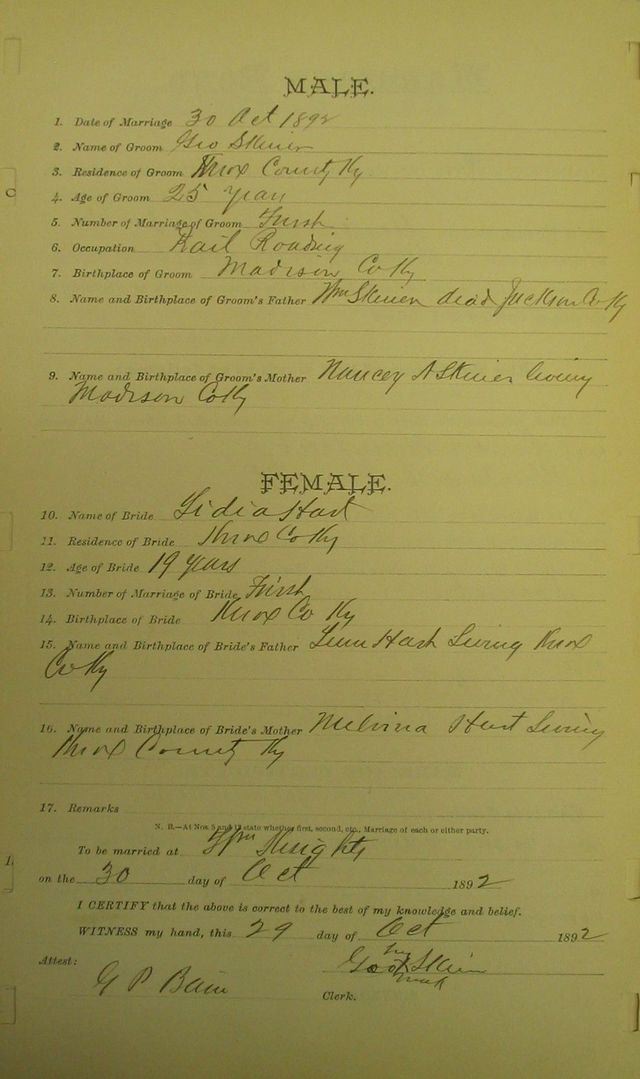 MALE.
1. Date of Marriage 30 Oct 1892
2. Name of Groom Geo Skiner
3. Residence of Groom Knox County Ky
4. Age of Groom 25 years
5. Number of Marriage of Groom First
6. Occupation Rail Roading
7. Birthplace of Groom Madison Co Ky
8. Name and Birthplace of Groom's Father Wm Skiner dead Jackson Co Ky
9. Name and Birthplace of Groom's Mother Nancey A Skiner living
Madison Co Ky
FEMALE.
10. Name of Bride Lidia Hart
11. Residence of Bride Knox Co Ky
12. Age of Bride 19 years
13. Number of Marriage of Bride First
14. Birthplace of Bride Knox Co Ky
15. Name and Birthplace of Bride's Father Hart Living Knox
Co Ky
16. Name and Birthplace of Bride's Mother Melvina Hart Living
Knox County Ky
17. Remarks
N. B.—At Nos. 5 and 13 state whether first, second, etc., Marriage of each or either party.
To be married at
on the 30 day of Oct 1892
I CERTIFY that the above is correct to the best of my knowledge and belief.
WITNESS my hand, this 29 day of Oct 1892
his
Geo x Skiner
mark
Attest:
G P Bain
Clerk.